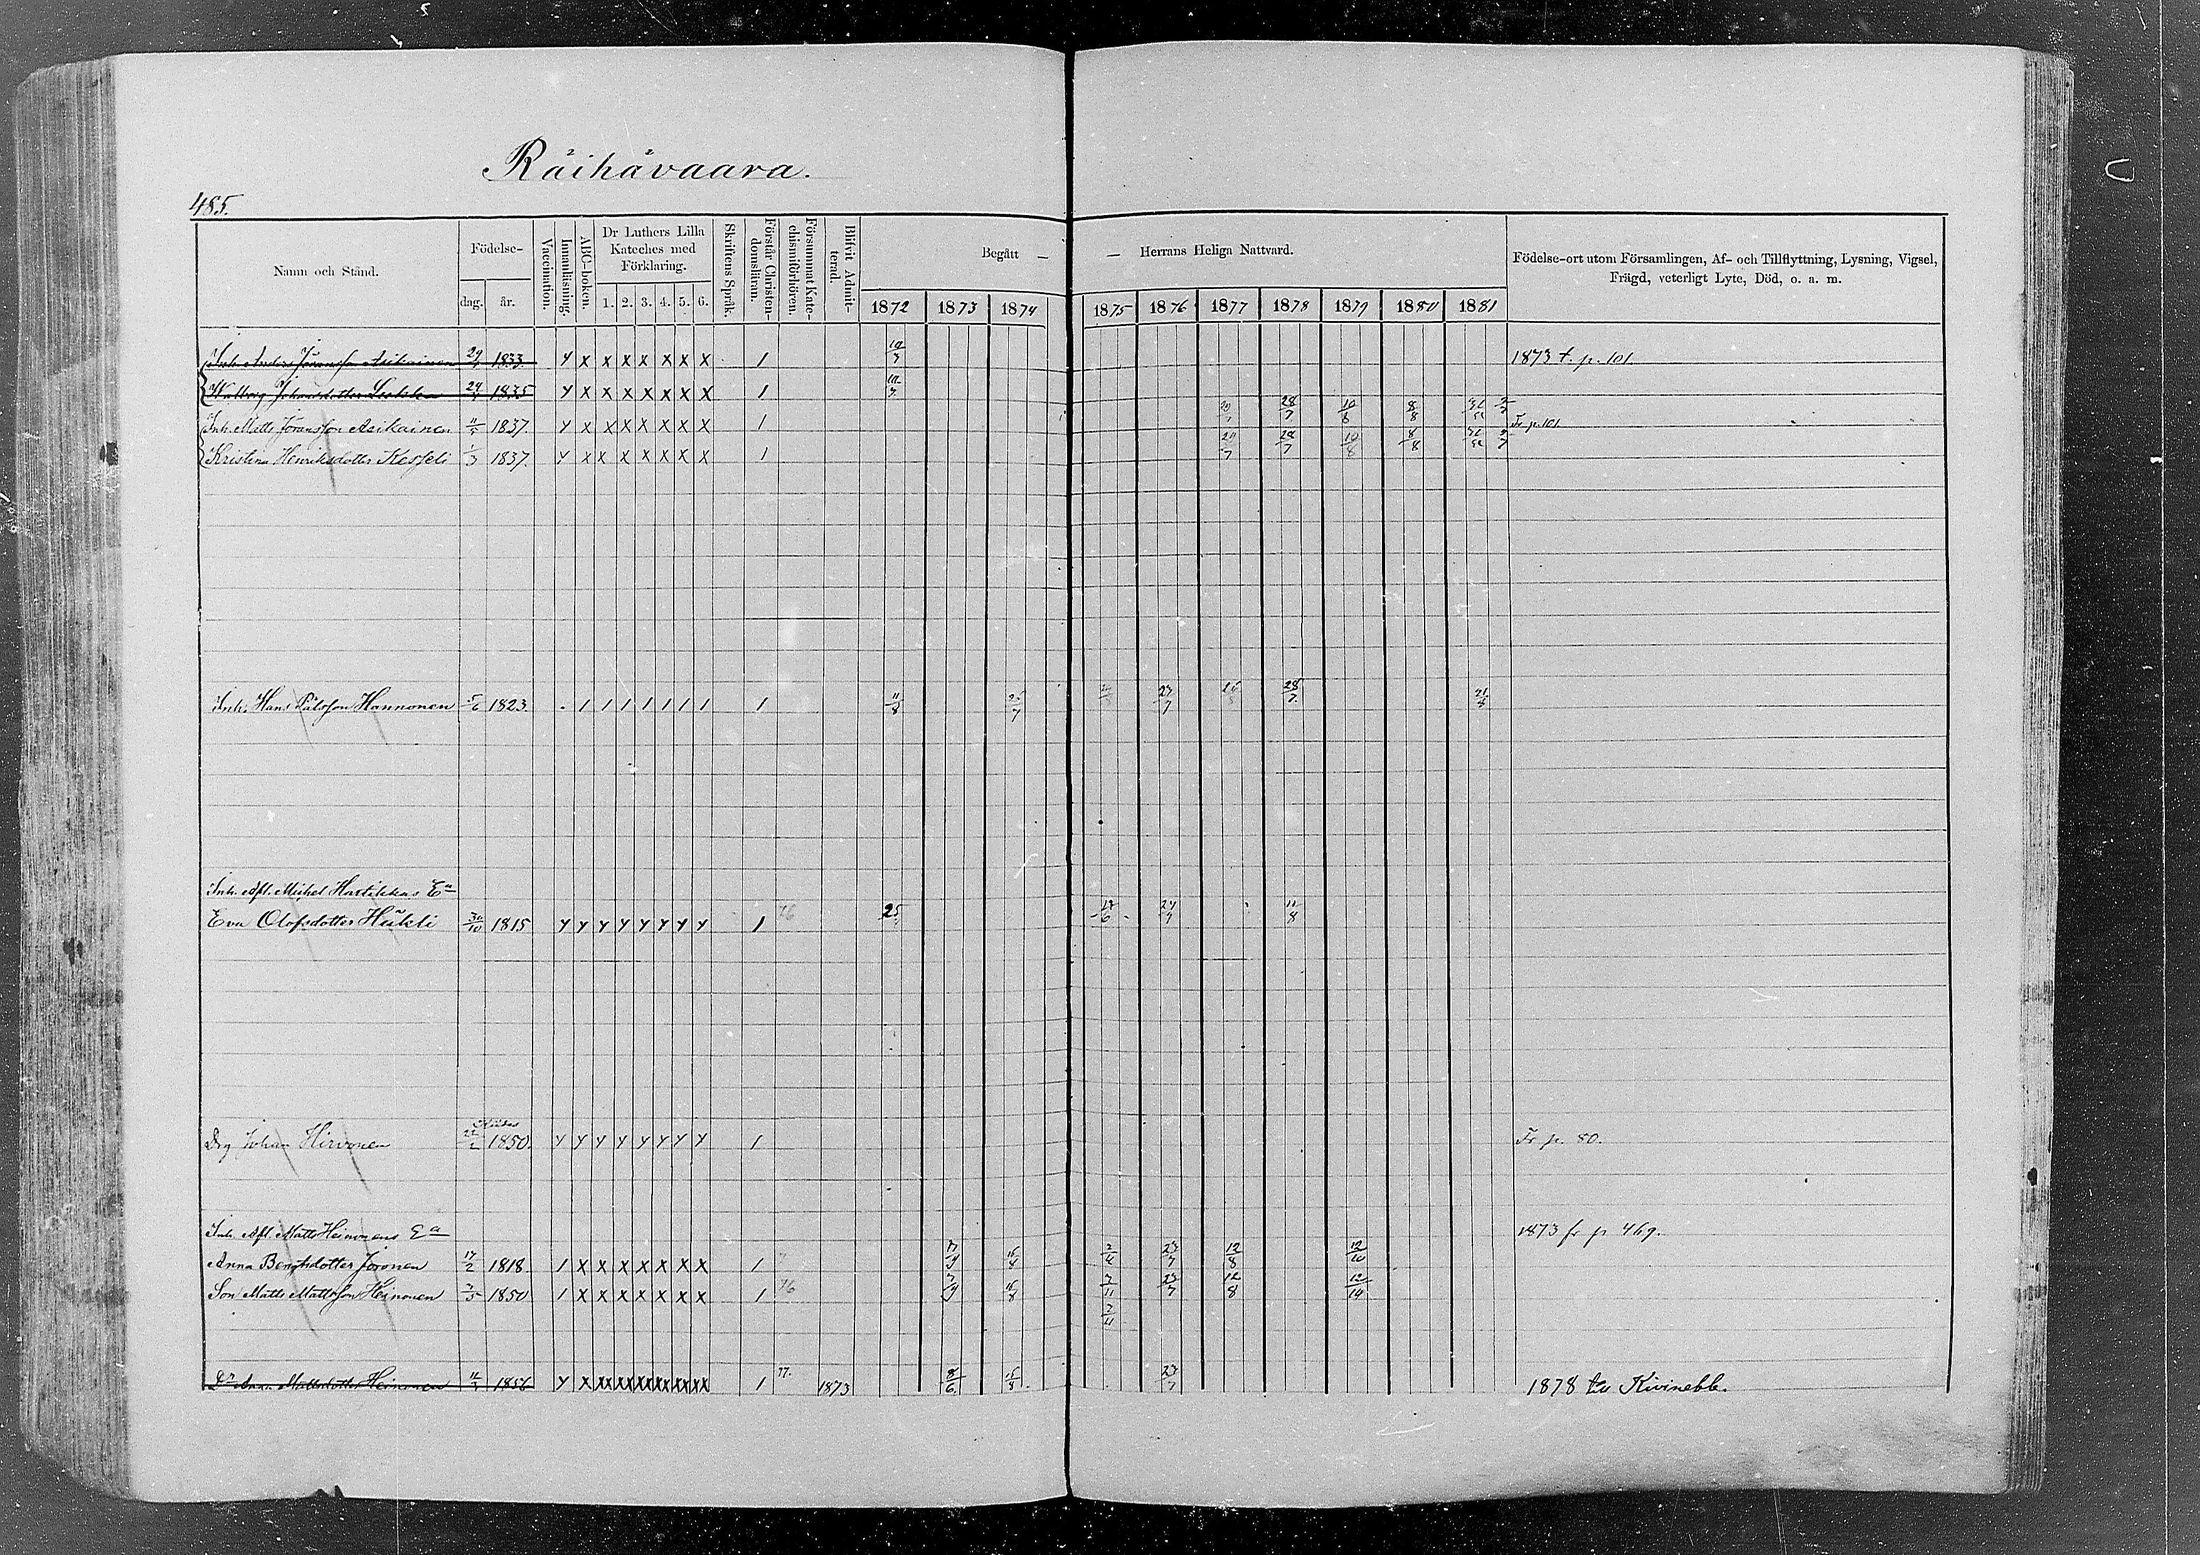 Räihävaara.
485.
Namn och Stånd.
Födelse-
dag.
år.
Vaccination.
Innanläsning.
ABC-boken.
Dr Luthers Lilla
Kateches med
Förklaring.
1. 2. 3. 4. 5. 6.
Skriftens Språk.
Förstår Christen-
domsläran.
Försummat Kate-
chismiförhören.
Blifvit Admit-
terad.
Begått — — Herrans Heliga Nattvard.
1872 1873 1874 1875 1876 1877 1878 1879 1880 1881
Födelse-ort utom Församlingen, Af- och Tillflyttning, Lysning, Vigsel,
Frägd, veterligt Lyte, Död, o. a. m.
Inh. Anders Jöransson Asikainen 1833. y x x x x x x x 1 1873 t. p. 101
Walborg Johansdotter 1835 y x x x x x x x 1
Inh. Matts Jöransson Asikainen 1837. y x x x x x x x 1 28/7 10/8 8/8 Fr p. 101
Kristina Henriksdotter Kesseli 1/3 1837. y x x x x x x x 1 28/7 10/8 8/8
Inh. Hans Pålsson Hannonen 5/6 1823. 1 1 1 1 1 1 1 1 11/8 25/7 27/7 28/7
Inh. Afl. Michel Hartikkas Ea
Eva Olofsdotter Hiikli 30/10 1815 y y y y y y y y 1 76 25 11/8
Drg Johan Hirvonen 1850. y y y y y y y y 1 Fr p. 80.
Inh. Afl. Matts Heinonens Ea 1873 fr p 469.
Anna Bengtsdotter Joronen 17/2 1818. 1 x x x x x x x 1 23/7 12/8 12/10
Son Matts Mattsson Heinonen 3/5 1850 1 x x x x x x x 1 76 23/7 12/8 12/10
Dr Anna Mattsdotter Heinonen 1856 y x xx xx xx xx xx xx 1 77. 1873 8/6 15/8 23/7 1878 till Kivinebb.